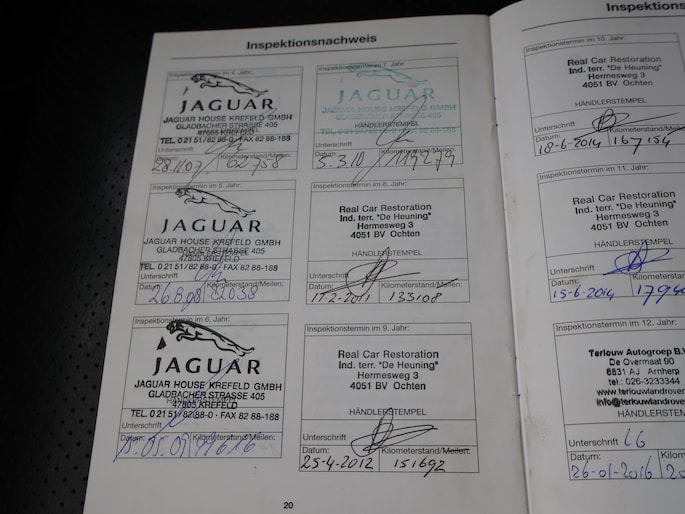 Inspektionsnachweis
Inspektionstermin im 4. Jahr:
JAGUAR
JAGUAR HOUSE KREFELD GMBH
GLADBACHER STRASSE 405
47805 KREFELD
TEL. 0 21 51/82 88-0 · FAX 82 88-188
Unterschrift
Datum: Kilometerstand/Meilen:
28.11.07 62758
Inspektionstermin im 5. Jahr:
JAGUAR
JAGUAR HOUSE KREFELD GMBH
GLADBACHER STRASSE 405
47805 KREFELD
TEL. 0 21 51/82 88-0 · FAX 82 88-188
Unterschrift
Datum: Kilometerstand/Meilen:
Inspektionstermin im 6. Jahr:
JAGUAR
JAGUAR HOUSE KREFELD GMBH
GLADBACHER STRASSE 405
47805 KREFELD
TEL. 0 21 51/82 88-0 · FAX 82 88-188
Unterschrift
Datum: Kilometerstand/Meilen:
15.05.09
Inspektionstermin im 7. Jahr:
JAGUAR
JAGUAR HOUSE KREFELD GMBH
GLADBACHER STRASSE 405
HÄNDLERSTEMPEL
TEL. 0 21 51/82 88-0 · FAX 82 88-188
Unterschrift
Datum: Kilometerstand/Meilen:
5.3.10 119279
Inspektionstermin im 8. Jahr:
Real Car Restoration
Ind. terr. "De Heuning"
Hermesweg 3
4051 BV Ochten
HÄNDLERSTEMPEL
Unterschrift
Datum: Kilometerstand/Meilen:
17-2-2011 133108
Inspektionstermin im 9. Jahr:
Real Car Restoration
Ind. terr. "De Heuning"
Hermesweg 3
4051 BV Ochten
HÄNDLERSTEMPEL
Unterschrift
Datum: Kilometerstand/Meilen:
25-4-2012 151692
20
Inspektions
Inspektionstermin im 10. Jahr:
Real Car Restoration
Ind. terr. "De Heuning"
Hermesweg 3
4051 BV Ochten
HÄNDLERSTEMPEL
Unterschrift
Datum: Kilometerstand/Meilen:
18-6-2014 167154
Inspektionstermin im 11. Jahr:
Real Car Restoration
Ind. terr. "De Heuning"
Hermesweg 3
4051 BV Ochten
HÄNDLERSTEMPEL
Unterschrift
Datum: Kilometerstand/Meilen:
15-6-2014 17940
Inspektionstermin im 12. Jahr:
Terlouw Autogroep B.V
De Overmaat 90
6831 AJ Arnhem
tel.: 026-3233344
www.terlouwlandrove
info@terlouwlandrover
HÄNDLERSTEMPEL
Unterschrift LG
Datum: Kilom
26-01-2016 20